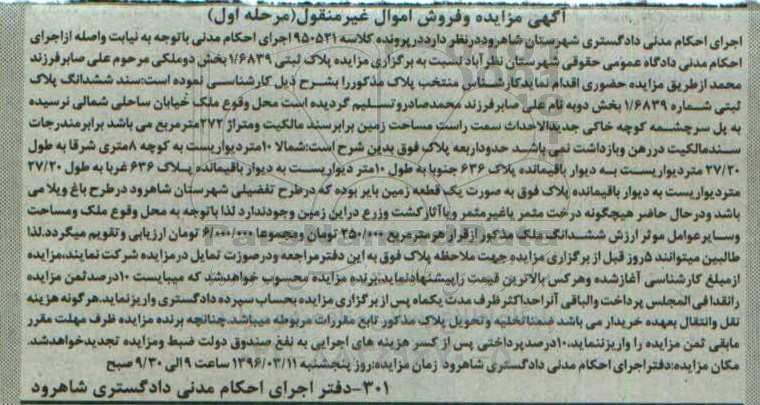 آگهی مزایده وفروش اموال غیرمنقول(مرحله اول)
اجرای احکام مدنی دادگستری شهرستان شاهروددرنظر دارددرپرونده کلاسه ۹۵۰۵۲۱ اجرای احکام مدنی باتوجه به نیابت واصله ازاجرای
احکام مدنی دادگاه عمومی حقوقی شهرستان نظرآباد نسبت به برگزاری مزایده پلاک ثبتی ۱/۶۸۳۹ بخش دوملکی مرحوم علی صابرفرزند
محمد ازطریق مزایده حضوری اقدام نمایدکارشناس منتخب پلاک مذکوررا بشرح ذیل کارشناسی نموده است:سند ششدانگ پلاک
ثبتی شماره ۱/۶۸۳۹ بخش دوبه نام علی صابرفرزند محمدصادرو تسلیم گردیده است محل وقوع ملک خیابان ساحلی شمالی نرسیده
به پل سرچشمه کوچه خاکی جدیدالاحداث سمت راست مساحت زمین برابرسند مالکیت ومتراژ ۲۷۲مترمربع می باشد برابرمندرجات
سندمالکیت دررهن وبازداشت نمی باشد حدوداربعه پلاک فوق بدین شرح است:شمالا ۱۰متردیواریست به کوچه ۸متری شرقا به طول
۲۷/۲۰ متردیواریست به دیوار باقیمانده پلاک ۶۳۶ جنوبا به طول ۱۰متر دیواریست به دیوار باقیمانده پلاک ۶۳۶ غربا به طول ۲۷/۲۰
متردیواریست به دیوار باقیمانده پلاک فوق به صورت یک قطعه زمین بایر بوده که درطرح تفضیلی شهرستان شاهرود درطرح باغ ویلا می
باشد ودرحال حاضر هیچگونه درخت مثمر یاغیرمثمر ویاآثارکشت وزرع دراین زمین وجودندارد لذا باتوجه به محل وقوع ملک ومساحت
وسایرعوامل موثر ارزش ششدانگ ملک مذکور ازقرار هرمترمربع ۲۵۰/۰۰۰ تومان ومجموعا ۶/۰۰۰/۰۰۰ تومان ارزیابی وتقویم میگردد.لذا
طالبین میتوانند ۵روز قبل از برگزاری مزایده جهت ملاحظه پلاک فوق به این دفترمراجعه ودرصورت تمایل درمزایده شرکت نمایند،مزایده
ازمبلغ کارشناسی آغازشده وهرکس بالاترین قیمت راپیشنهادنماید،برنده مزایده محسوب خواهدشد که میبایست ۱۰درصدثمن مزایده
رانقدافی المجلس پرداخت والباقی آنراحداکثر ظرف مدت یکماه پس از برگزاری مزایده بحساب سپرده دادگستری واریزنماید.هرگونه هزینه
نقل وانتقال بعهده خریدار می باشد ضمناتخلیه وتحویل پلاک مذکور تابع مقررات مربوطه میباشد.چنانچه برنده مزایده ظرف مهلت مقرر
مابقی ثمن مزایده را واریزننماید،۱۰درصدپرداختی پس از کسر هزینه های اجرایی به نفع صندوق دولت ضبط ومزایده تجدیدخواهدشد.
مکان مزایده:دفتراجرای احکام مدنی دادگستری شاهرود زمان مزایده:روز پنجشنبه ۱۳۹۶/۰۳/۱۱ ساعت ۹ الی ۹/۳۰ صبح
۳۰۱-دفتر اجرای احکام مدنی دادگستری شاهرود